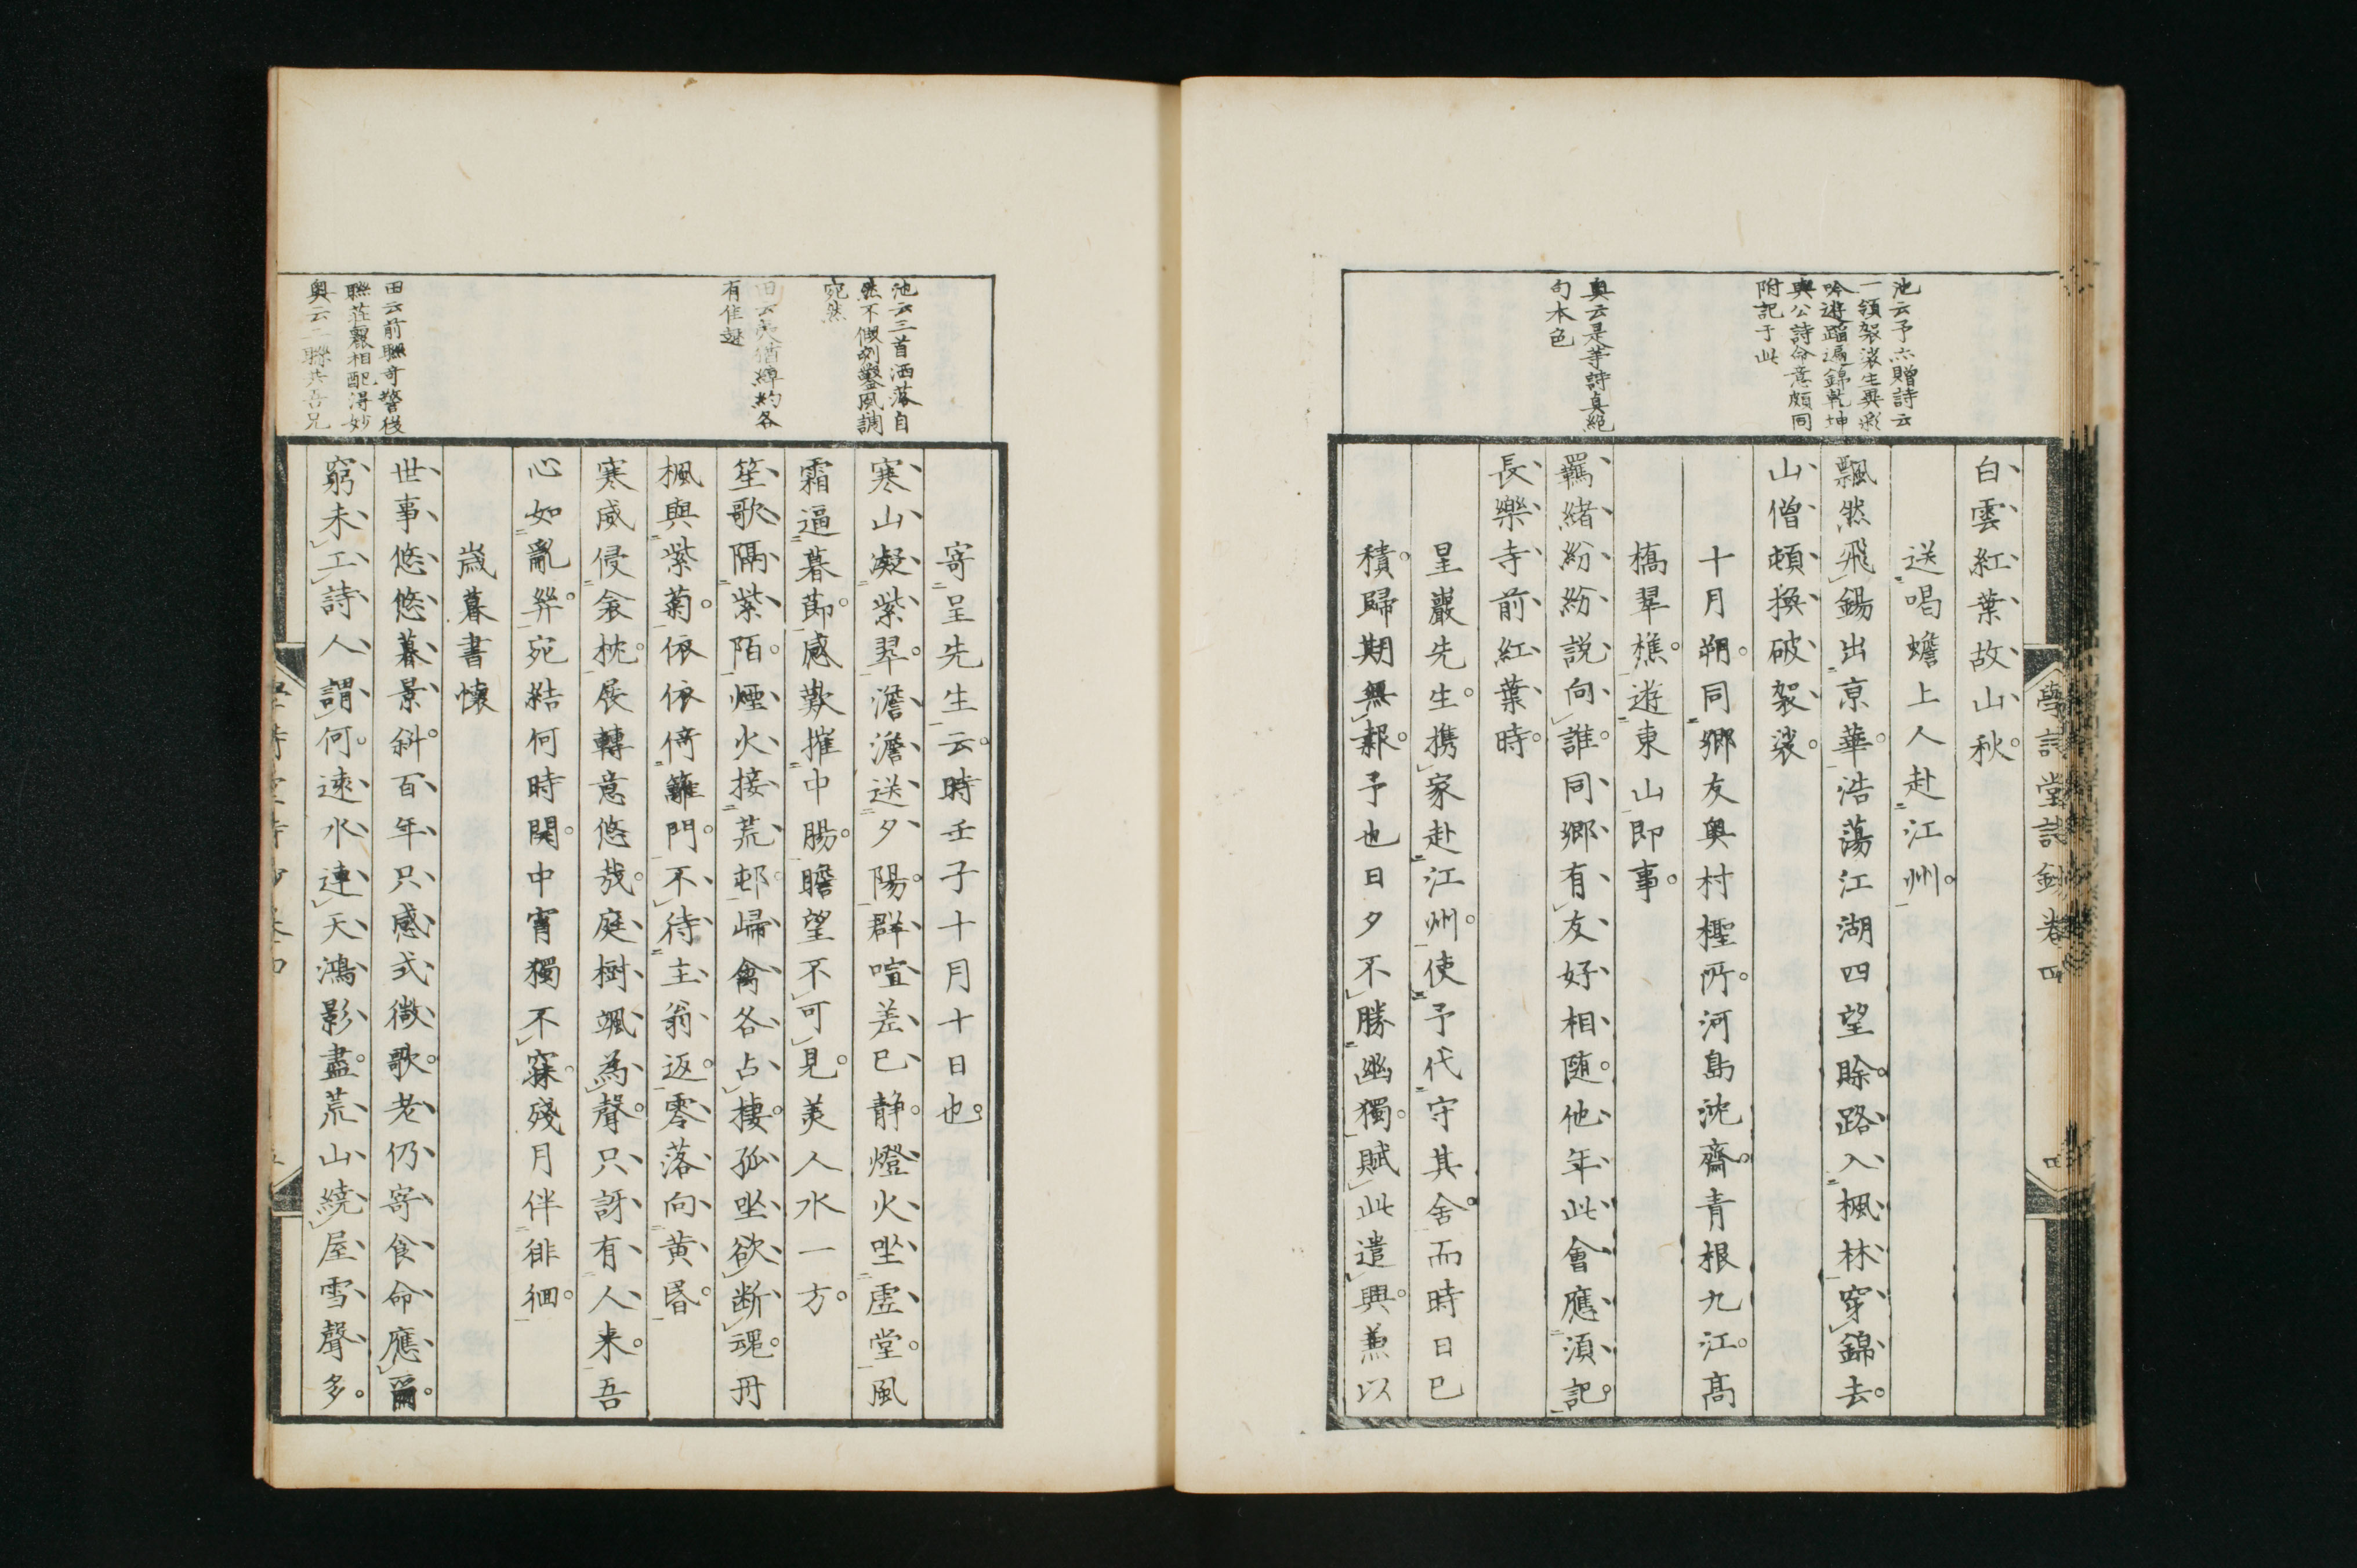 池云予亦贈詩云
一領袈裟生異彩
吟遊蹈遍錦乾坤
與公詩命意頗同
附記于此
奥云是等詩真絕
句本色
學詩堂詩鈔卷四
四
白雲紅葉故山秋。
送唱蟾上人赴江州。
飄然飛錫出京華。浩蕩江湖四望賒。路入楓林穿錦去。
山僧頓換破袈裟。
十月朔。同鄉友奥村檉所。河島沈齋。青根九江。高
橋翠樵。遊東山即事。
羈緒紛紛說向誰。同鄉有友好相随。他年此會應須記。
長樂寺前紅葉時。
呈巖先生。携家赴江州。使予代守其舍。而時日已
積。歸期無報。予也日夕不勝幽獨。賦此遣興。兼以
池云三首洒落自
然不假刻鑿風調
宛然
田云夾猶綽約各
有佳趣
田云前聯奇警後
聯莊麗相配得妙
奥云二聯共吾兄
寄呈先生云。時壬子十月十日也。
寒山凝紫翠。澹澹送夕陽。群喧差已静。燈火坐虚堂。風
霜逼暮節。感歎摧中腸。瞻望不可見。美人水一方。
笙歌隔紫陌。煙火接荒邨。歸禽各占棲。孤坐欲断魂。丹
楓與紫菊。依依倚籬門。不待主翁返。零落向黄昏。
寒威侵衾枕。展轉意悠哉。庭樹颯為聲。只訝有人来。吾
心如亂絲。宛結何時開。中宵獨不寐。殘月伴徘徊。
歳暮書懷
世事悠悠暮景斜。百年只感式微歌。老仍寄食命應爾。
窮未工詩人謂何。遠水連天鴻影盡。荒山繞屋雪聲多。